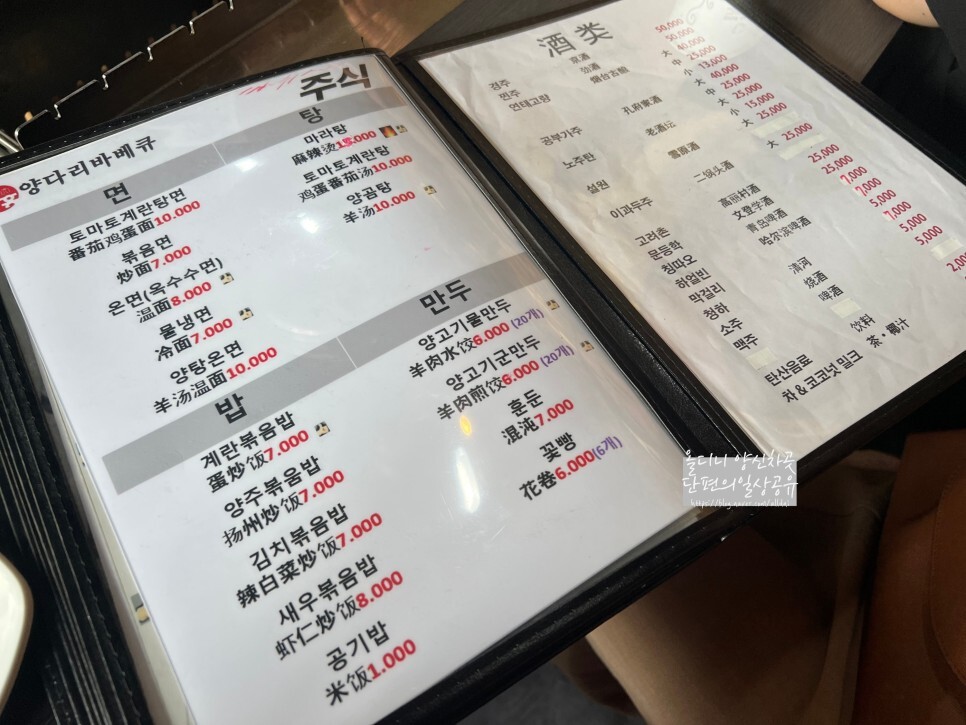 주식
양다리바베큐
면
토마토계란탕면
番茄鸡蛋面10.000
볶음면
炒面7.000
온면(옥수수면)
温面8.000
물냉면
冷面7.000
양탕온면
羊汤温面10.000
탕
마라탕
麻辣烫
토마토계란탕
鸡蛋番茄汤10.000
양곰탕
羊汤10.000
밥
계란볶음밥
蛋炒饭7.000
양주볶음밥
扬州炒饭7.000
김치볶음밥
辣白菜炒饭7.000
새우볶음밥
虾仁炒饭8.000
공기밥
米饭1.000
만두
양고기물만두
羊肉水饺6.000 (20개)
양고기군만두
羊肉煎饺6.000 (20개)
훈둔
混沌7.000
꽃빵
花卷6.000(6개)
酒类
경주 京酒 50,000
면주 50,000
연태고량 大 40,000
中 25,000
小 13,000
공부가주 孔府家酒 大 40,000
中 25,000
小 15,000
노주탄 老酒坛 大 25,000
설원 雪原酒
이과두주 二锅头酒 大 25,000
고려촌 高丽村酒 25,000
문등학 文登学酒 25,000
칭따오 青岛啤酒 7,000
하얼빈 哈尔滨啤酒 7,000
막걸리 5,000
청하 清河 7,000
소주 烧酒 5,000
맥주 啤酒 5,000
탄산음료 饮料
차&코코넛 밀크 茶·椰汁
올디너 양신차곳
단편의일상공유